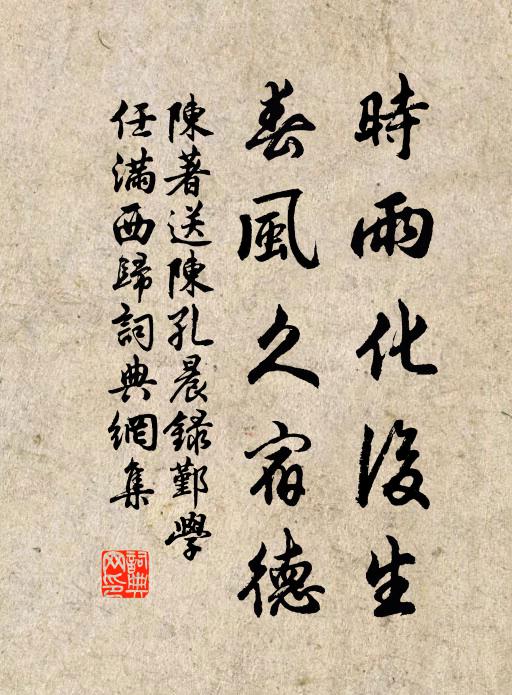 時雨化後生
春風久宿德
陳著送陳孔晨錄鄞學
任滿西歸詞典網集
詞典
网印